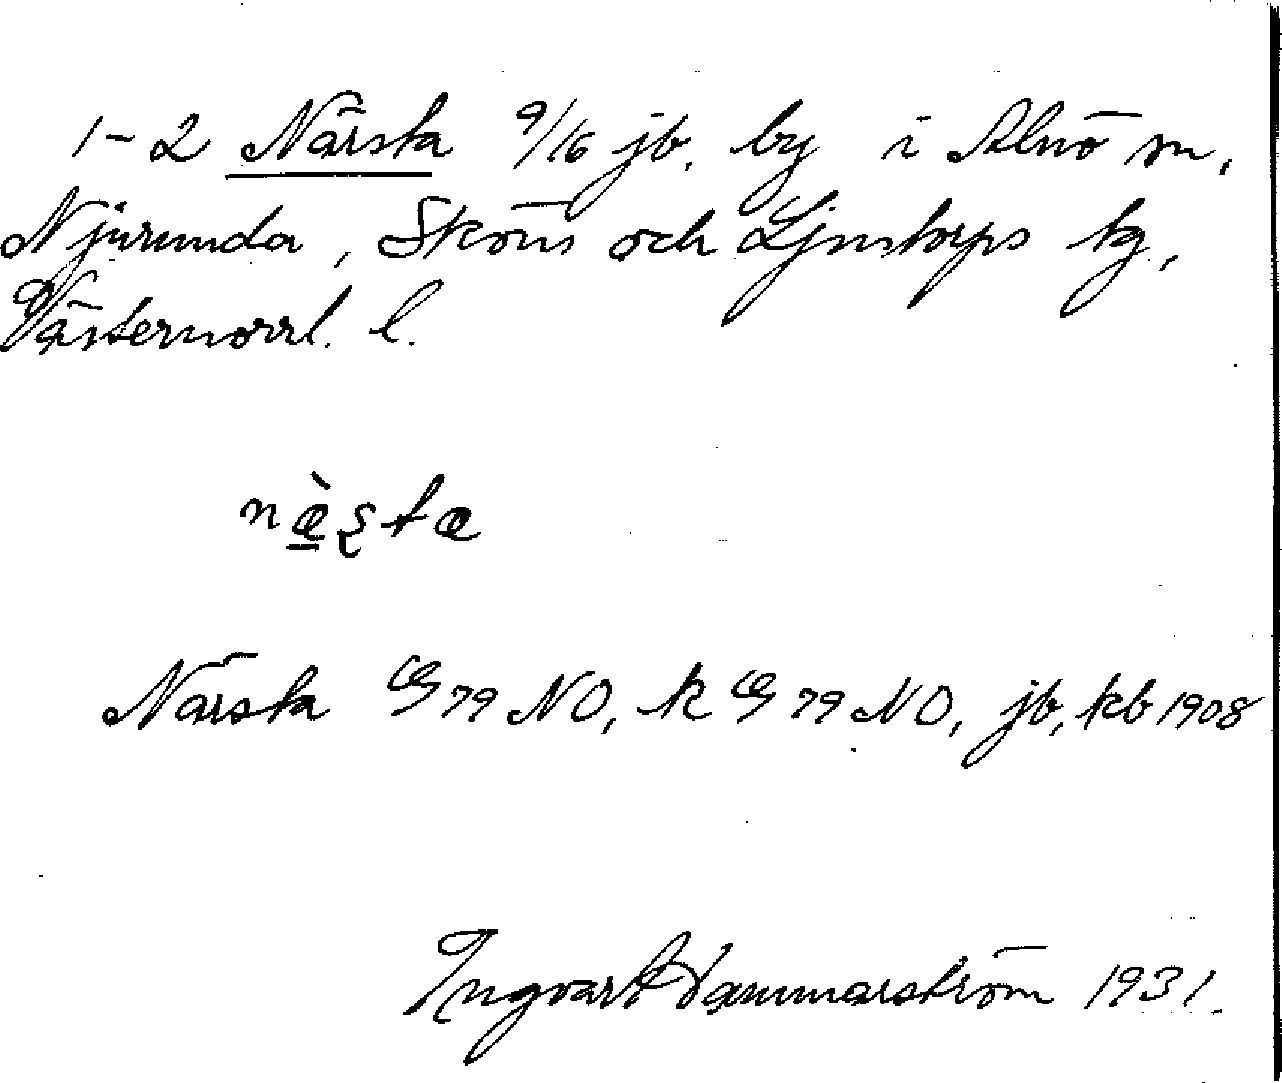 1-2 Närsta 9/16 jb. by i Alnö sn,
Njurunda, Sköns och Ljustorps tg,
Västernorrl. l.
næ̠̀ʂtæ
Närsta GS 79 NO, k GS 79 NO, jb, kb 1908
Ingvar Hammarström 1931.